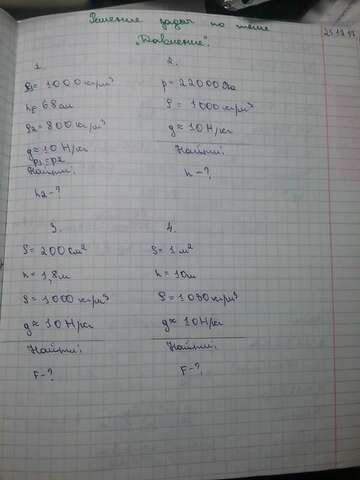 Решение задач по теме
"Давление".
21.12.17
1.
ρ₁=1000 кг/м³
h₁=68 см
ρ₂=800 кг/м³
g≈10 Н/кг
p₁=p₂
Найти:
h₂-?
2.
p=22000 Па
ρ=1000 кг/м³
g≈10 Н/кг
Найти:
h-?
3.
S=200 см²
h=1,8 м
ρ=1000 кг/м³
g≈10 Н/кг
Найти:
F-?
4.
S=1 м²
h=10 м
ρ=1030 кг/м³
g≈10 Н/кг
Найти:
F-?